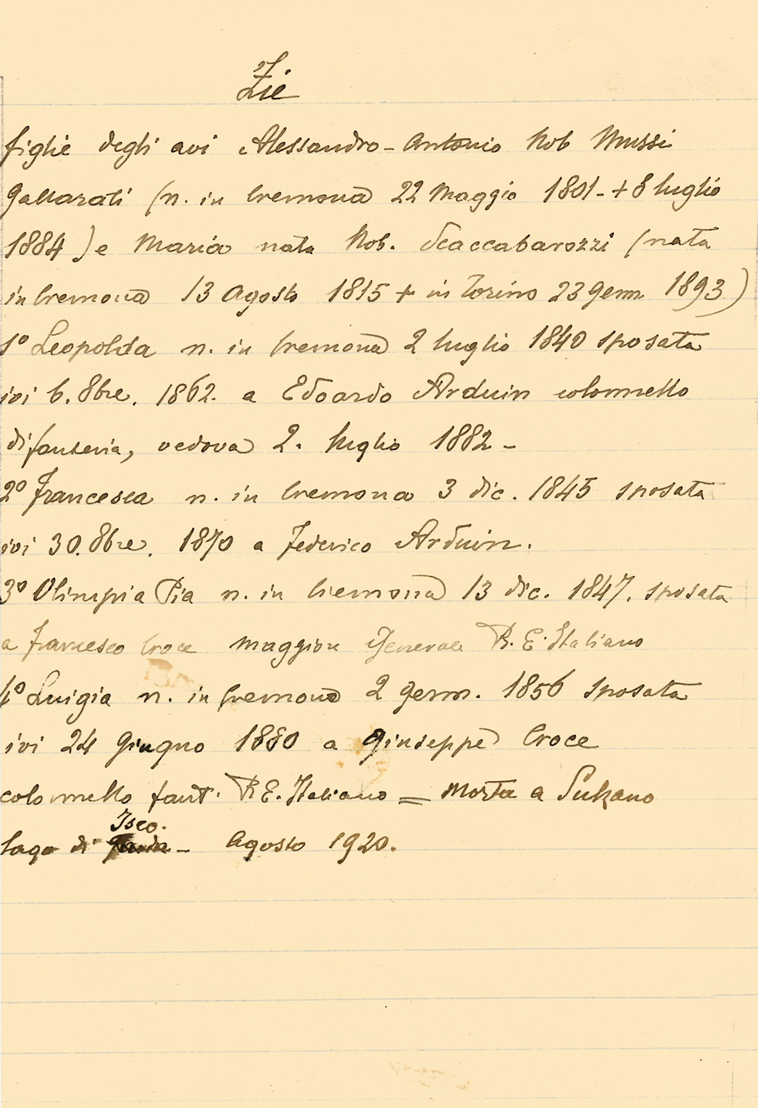 Zie
figlie degli avi Alessandro-Antonio Nob Mussi
Gallarati (n. in Cremona 22 Maggio 1801 - + 8 luglio
1884) e Maria nata Nob. Scaccabarozzi (nata
in Cremona 13 Agosto 1815 + in Torino 23 Genn 1893)
1º Leopolda n. in Cremona 2 luglio 1840 sposata
ivi 6. 8bre. 1862. a Edoardo Arduin colonnello
di fanteria, vedova 2. luglio 1882 -
2º Francesca n. in Cremona 3 dic. 1845 sposata
ivi 30. 8bre. 1870 a Federico Arduin.
3º Olimpia Pia n. in Cremona 13 dic. 1847. sposata
a Francesco Croce maggior Generale R. E. Italiano
4º Luigia n. in Cremona 2 Genn. 1856 sposata
ivi 24 Giugno 1880 a Giuseppe Croce
colonnello fant. R. E. Italiano = Morta a Sulzano
Iseo.
lago di - Agosto 1920.